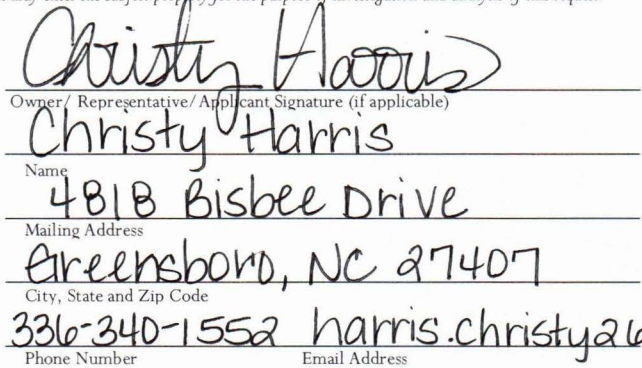 Christy Harris
Owner/ Representative/ Applicant Signature (if applicable)
Christy Harris
Name
4818 Bisbee Drive
Mailing Address
Greensboro, NC 27407
City, State and Zip Code
336-340-1552 harris.christy26
Phone Number Email Address